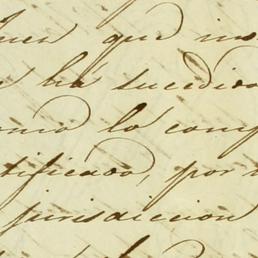 que no
ha sucedido
como lo comp
tificado, por
jurisdiccion